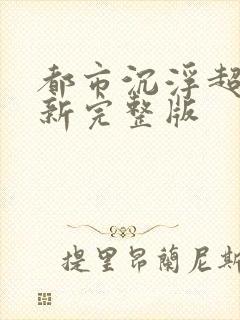 都市沉浮超
新完整版
提里昂蘭尼斯